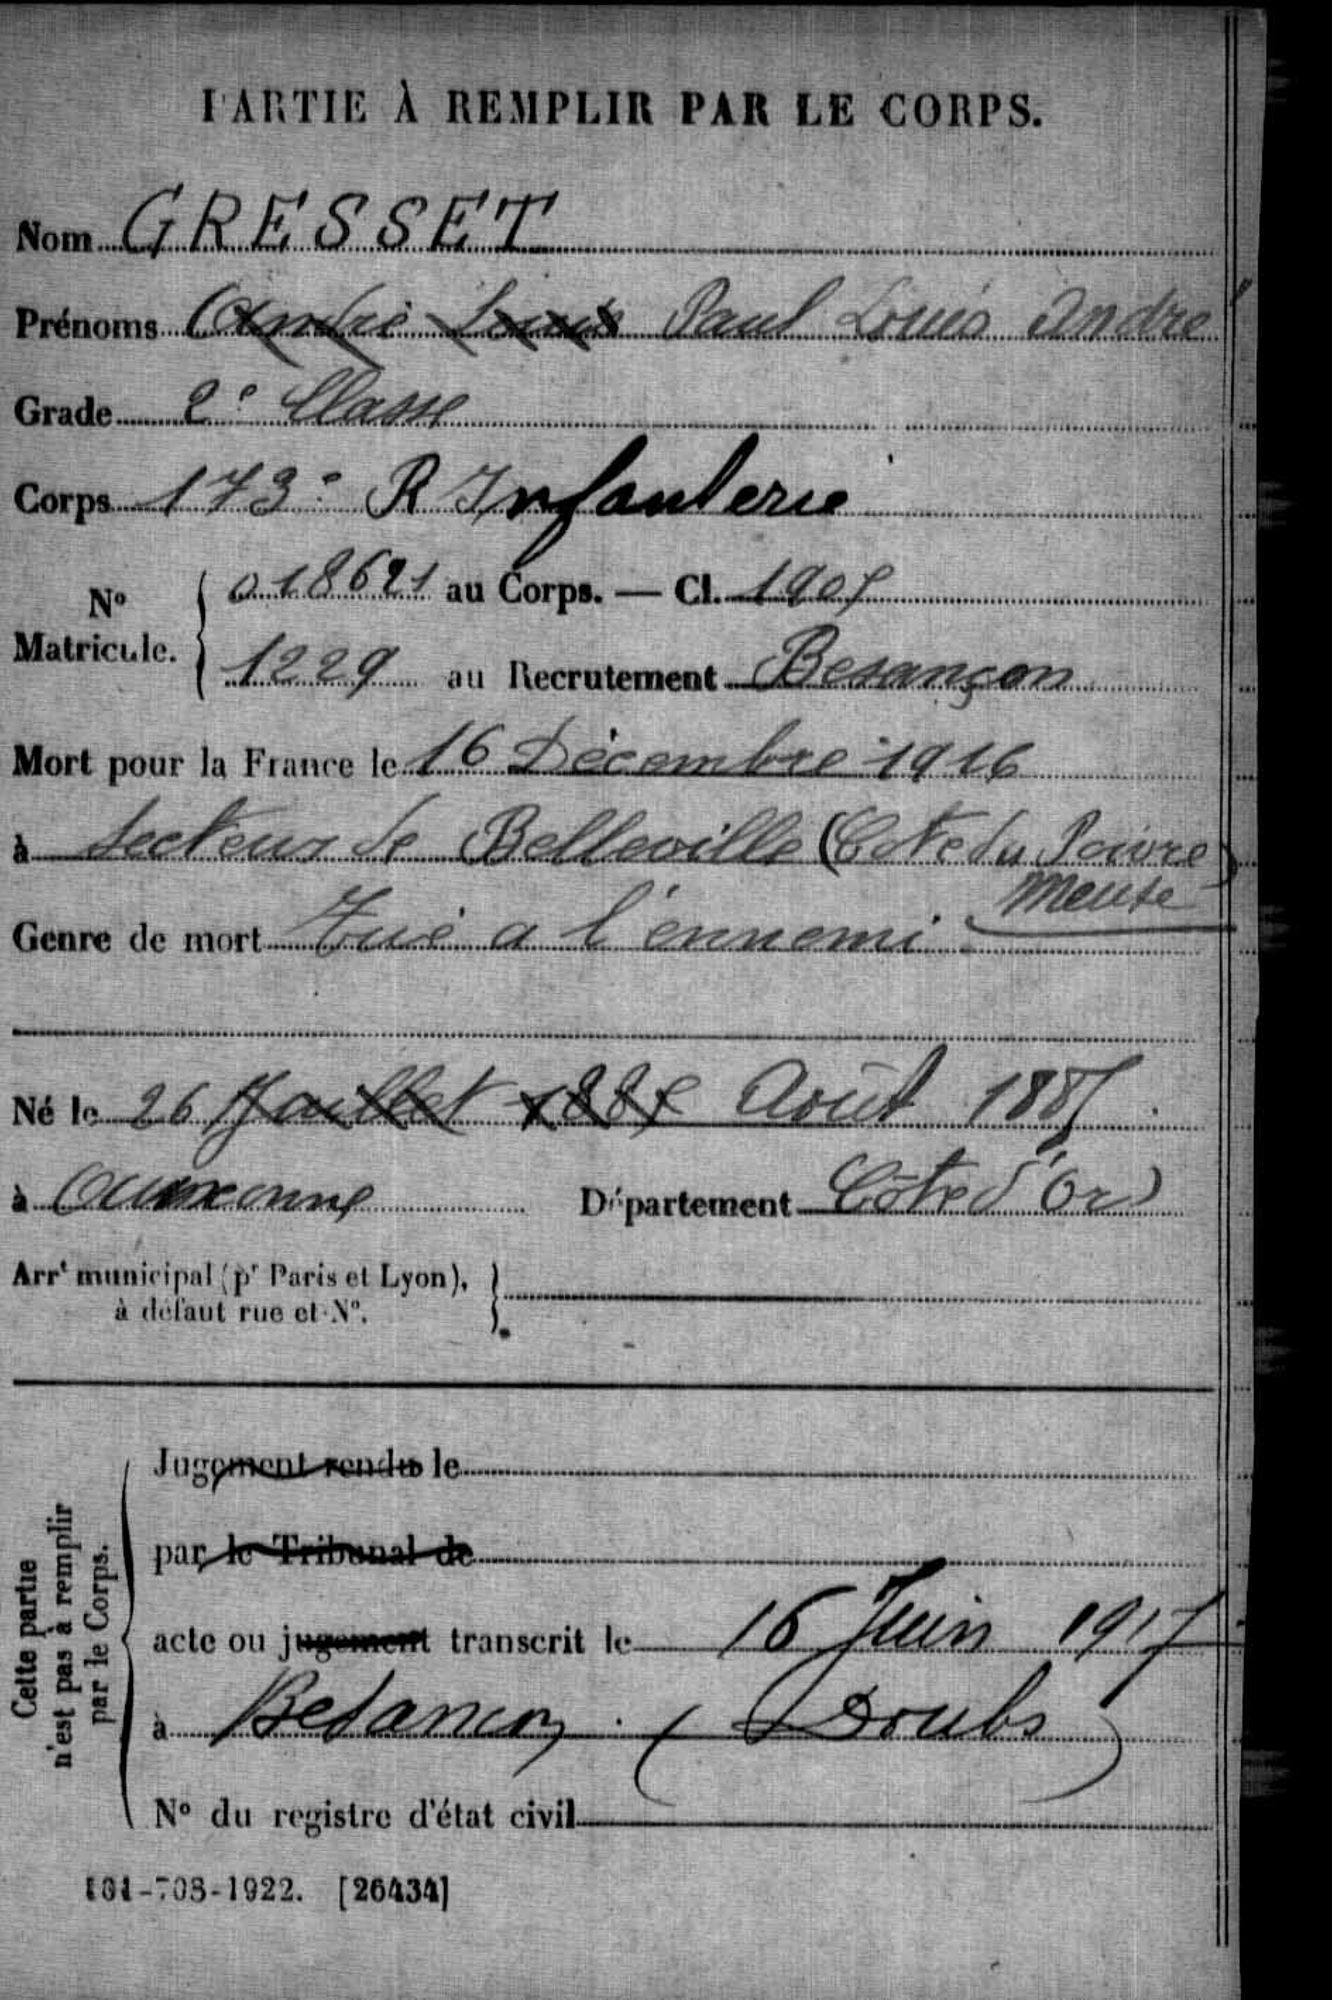 PARTIE À REMPLIR PAR LE CORPS.
Nom GRESSET
Prénoms André Louis Paul Louis André
Grade 2e Classe
Corps 173e R Infanterie
No Matricule. 018621 au Corps. — Cl. 1907
1229 au Recrutement Besançon
Mort pour la France le 16 Décembre 1916
à Secteur de Belleville (Cote du Poivre)
Meuse
Genre de mort Tué a l'ennemi
Né le 26 Juillet 1887 Août 1887
à Auxonne Département Côte d'Or
Arrt municipal (pr Paris et Lyon),
à défaut rue et No.
Cette partie
n'est pas à remplir
par le Corps.
Jugement rendu le
par le Tribunal de
acte ou jugement transcrit le 16 Juin 1917
à Besançon (Doubs)
No du registre d'état civil
101-708-1922. [26434]